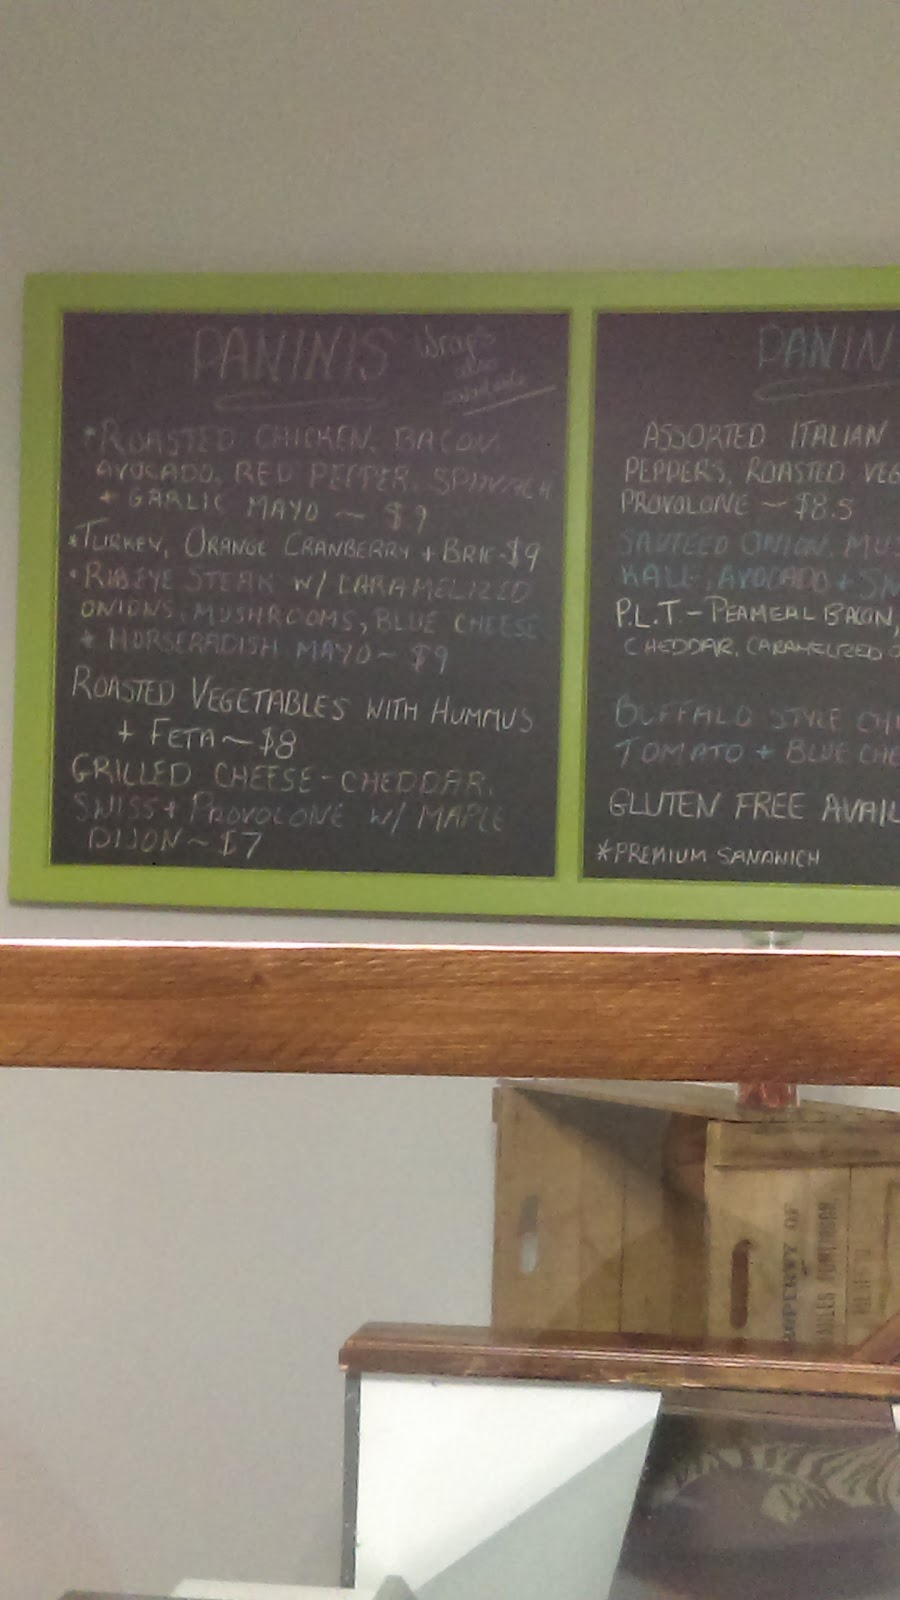 PANINIS Wraps
also
available
*ROASTED CHICKEN, BACON,
AVOCADO, RED PEPPER, SPINACH
+ GARLIC MAYO ~ $9
*TURKEY, ORANGE CRANBERRY + BRIE-$9
*RIBEYE STEAK W/ CARAMELIZED
ONIONS, MUSHROOMS, BLUE CHEESE
+ HORSERADISH MAYO ~ $9
ROASTED VEGETABLES WITH HUMMUS
+ FETA ~ $8
GRILLED CHEESE-CHEDDAR,
SWISS + PROVOLONE W/ MAPLE
DIJON ~ $7
PANIN
ASSORTED ITALIAN
PEPPERS, ROASTED VEG
PROVOLONE ~ $8.5
SAUTEED ONION, MUS
KALE, AVOCADO + SW
P.L.T. - PEAMEAL BACON,
CHEDDAR, CARAMELIZED O
BUFFALO STYLE CHI
TOMATO + BLUE CHE
GLUTEN FREE AVAIL
*PREMIUM SANDWICH
OPERTY OF